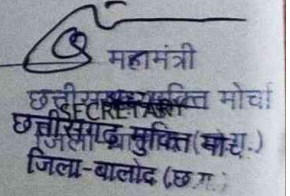 महामंत्री
छत्तीसगढ़ मुक्ति मोर्चा
SECRETARY
छत्तीसगढ़ मुक्ति (मोर्चा.)
जिला-बालोद (छ.ग.)